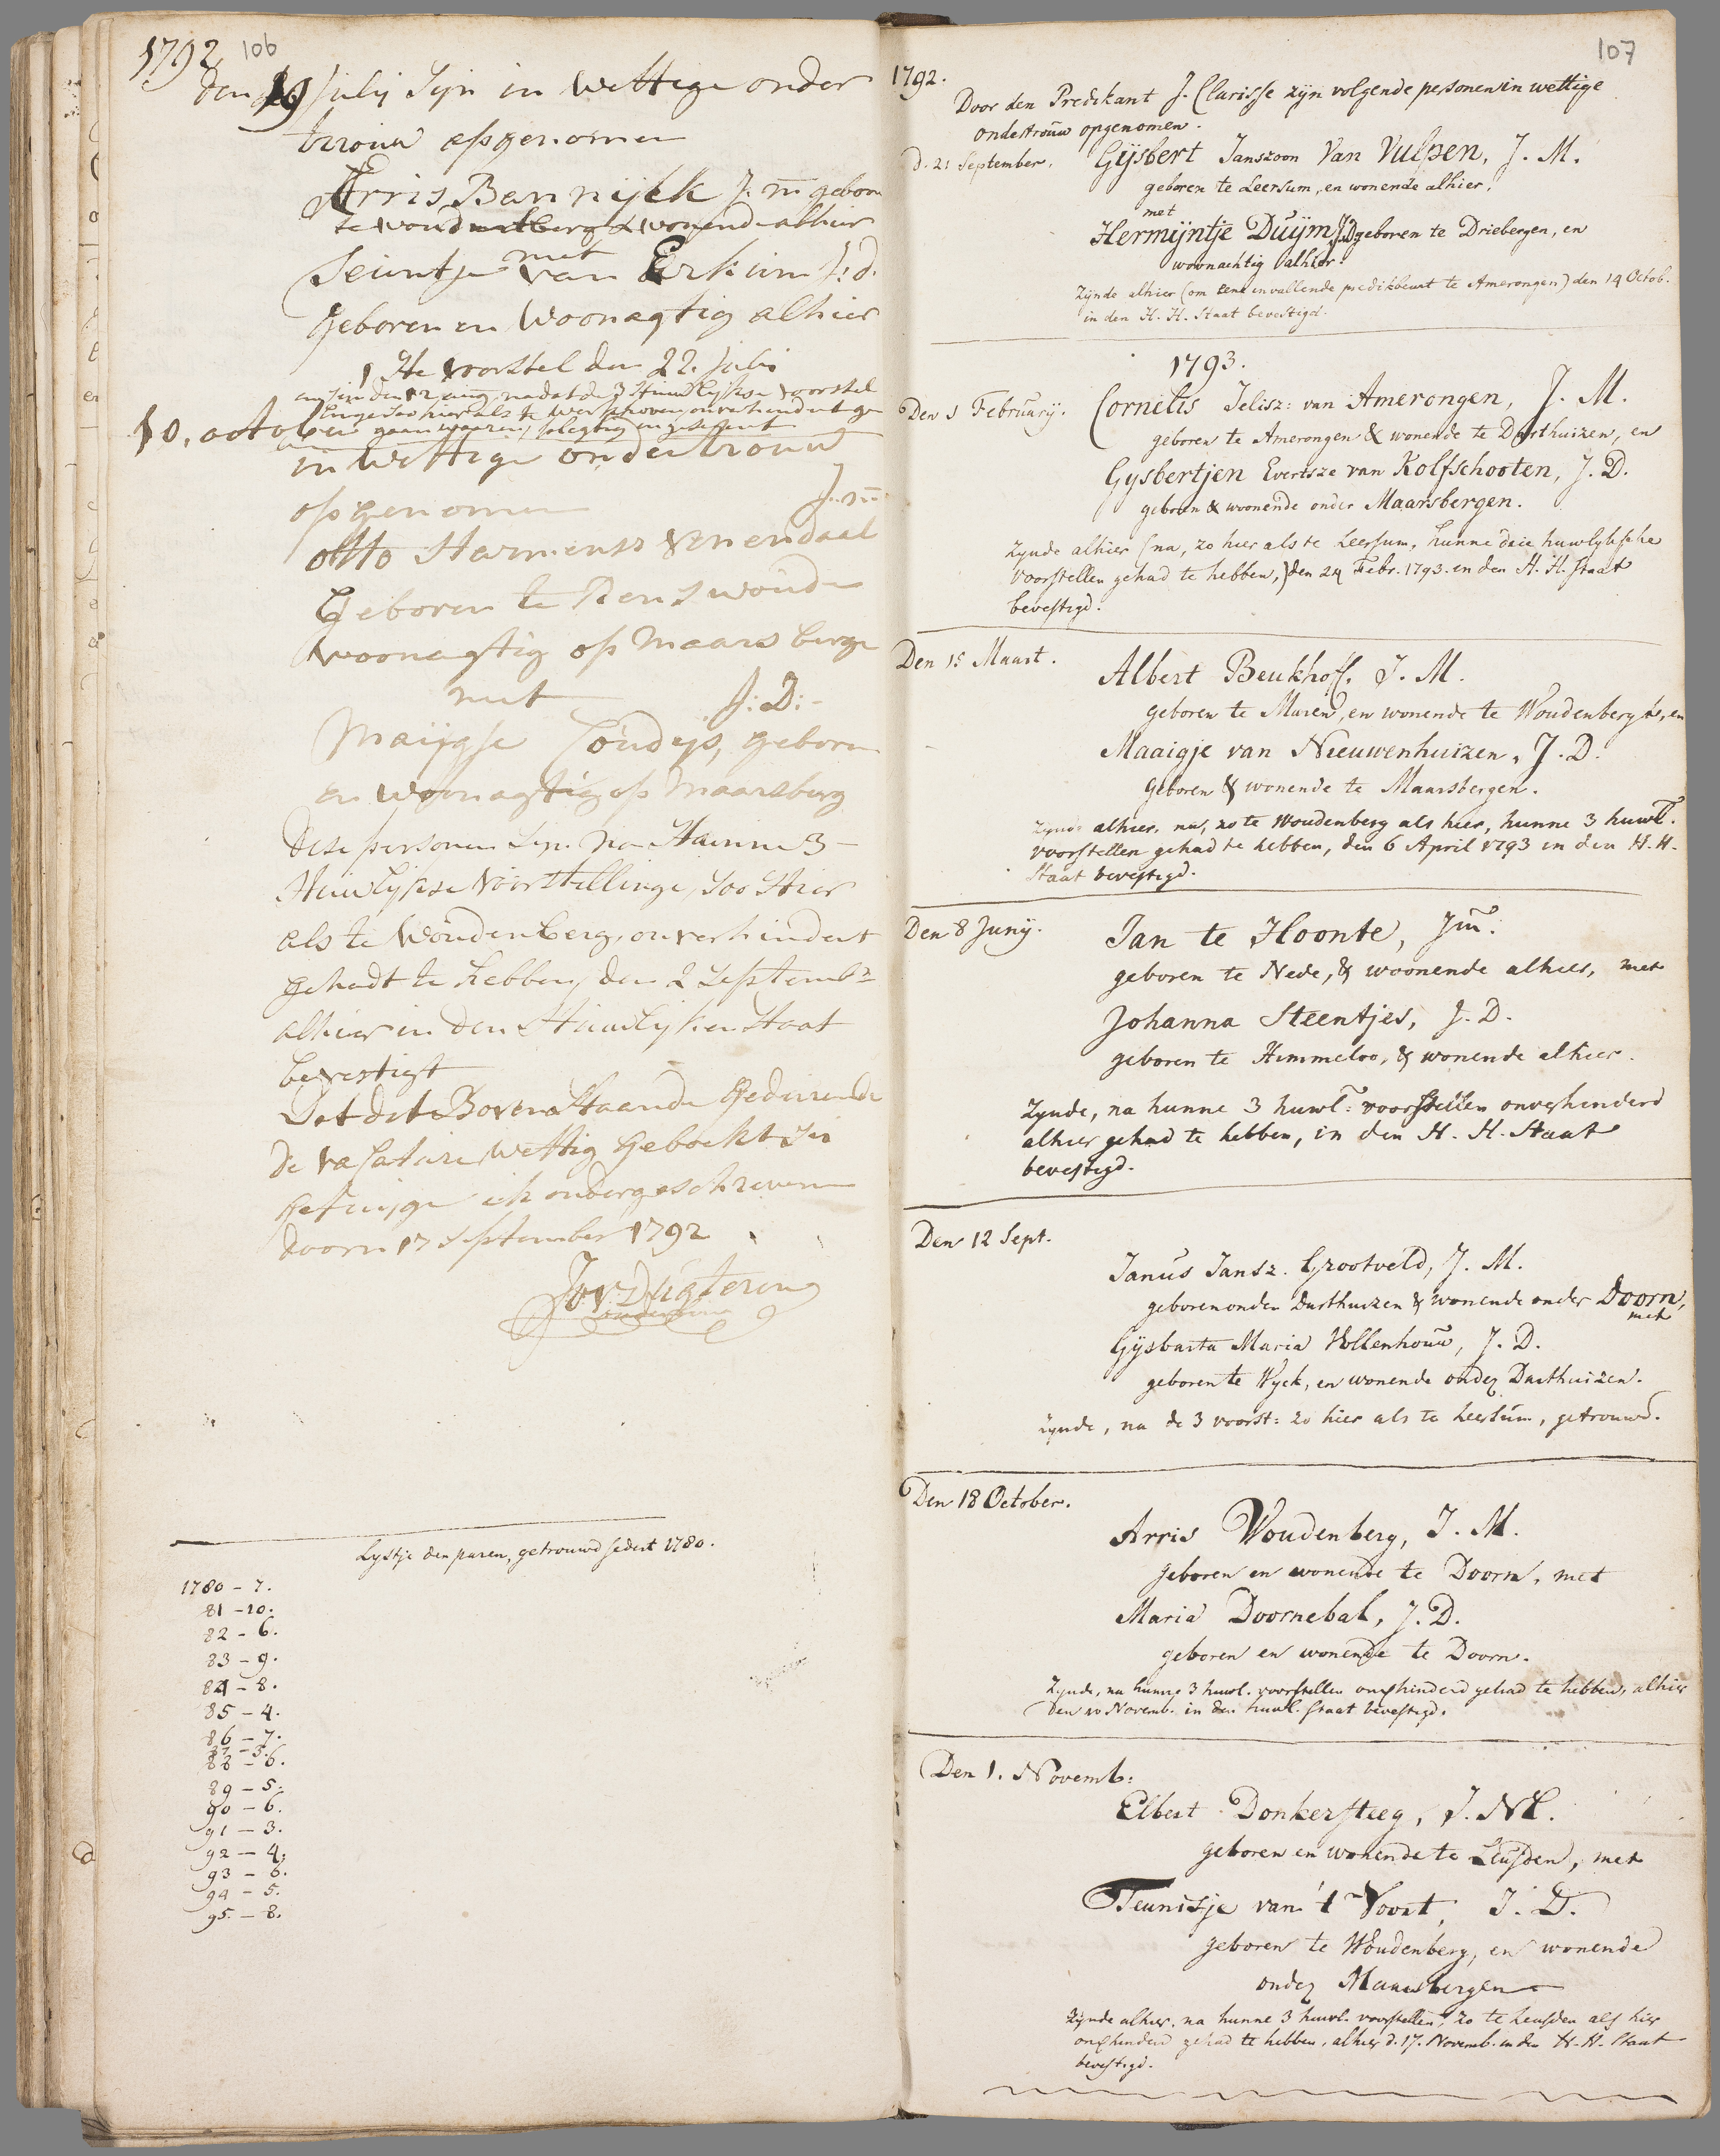 1792 106
den 19 Julij Sijn in Wettige onder
trouw opgenomen
Arris Bennijck J. m geboren
te woudenberg & wonende alhier
met
Teuntje van Erkum J: d.
geboren en Woonagtig alhier
1ste voorstel den 22 Juli
10. october
in Wettige ondertrouw
opgenomen J. m
otto Harmensz Venendaal
Geboren te Renswoude
woonagtig op Maarsberge
met J: D:
Maijgje Coudijs, geboren
en Woonagtig op Maarsberg
dese personen Sijn na Haunne 3
Huwlijkse voorstellinge, Soo Hier
als te Woudenberg, onverhindert
gehadt te hebben, den 2 Septembr
alhier in den Huwlijken Staat
bevestigt
Dat dit Boven Staande Gedurende
de vacature Wettig Geboekt is
getuijge ik ondergeschreven
doorn 17 September 1792
Jor Dugtering
ouderling
Lystje der paren, getrouwd sedert 1780.
1780 – 7.
81 – 10.
82 – 6.
83 – 9.
84 – 8.
85 – 4.
86 – 7.
87 – 3.
88 – 6.
89 – 5.
90 – 6.
91 – 3.
92 – 4.
93 – 6.
94 – 5.
95 – 8.
107
1792.
Door den Predikant J. Clarisse zijn volgende personen in wettige
ondertrouw opgenomen.
D. 21 September. Gijsbert Janszoon Van Vulpen, J. M.
geboren te Leersum, en wonende alhier,
met
Hermijntje Duijm J.D. geboren te Driebergen, en
woonachtig alhier.
Zijnde alhier (om eene invallende predikbeurt te Amerongen) den 14 Octob.
in den H. H. Staat bevestigd.
1793.
Den 1 Februarij. Cornelis Jelisz: van Amerongen, J. M.
geboren te Amerongen & wonende te Darthuizen, en
Gijsbertjen Evertsze van Kolfschooten, J. D.
geboren & woonende onder Maarsbergen.
Zynde alhier (na, zo hier als te Leersum, hunne drie huwlyksche
voorstellen gehad te hebben,) den 24 Febr. 1793. in den H. H. Staat
bevestigd.
Den 15 Maart. Albert Beukhoff, J. M.
geboren te Maren, en wonende te Woudenberg, en
Maaigje van Nieuwenhuizen, J. D.
geboren & wonende te Maarsbergen.
Zynde alhier, na, zo te Woudenberg als hier, hunne 3 huwl.
voorstellen gehad te hebben, den 6 April 1793 in den H. H.
Staat bevestigd.
Den 8 Junij. Jan te Hoonte, Jm.
geboren te Nede, & woonende alhier, met
Johanna Steentjes, J. D.
geboren te Himmeloo, & wonende alhier.
Zynde, na hunne 3 huwl: voorstellen onverhinderd
alhier gehad te hebben, in den H. H. Staat
bevestigd.
Den 12 Sept.
Janus Jansz. Grootveld, J. M.
geboren onder Darthuizen & wonende onder Doorn,
met
Gijsberta Maria Vollenhouw, J. D.
geboren te Wyck, en wonende onder Darthuizen.
Zijnde, na de 3 voorst: zo hier als te Leersum, getrouwd.
Den 18 October.
Arris Woudenberg, J. M.
geboren en wonende te Doorn, met
Maria Doornebal, J. D.
geboren en wonende te Doorn.
Zynde, na hunne 3 huwl. voorstellen onverhinderd gehad te hebben, alhier
den 10 Novemb. in den huwl. Staat bevestigd.
Den 1. Novemb:
Elbert Donkersteeg, J. M.
geboren en wonende te Leusden, met
Teunisje van 't Voort, J. D.
geboren te Woudenberg, en wonende
onder Maarsbergen
Zijnde alhier, na hunne 3 huwl. voorstellen, zo te Leusden als hier
onverhinderd gehad te hebben, alhier d. 17. Novemb. in den H. H. Staat
bevestigd.